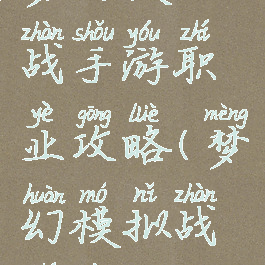 zhàn shǒu yóu zhí
战手游职
yè gōng lüè mèng
业攻略(梦
huàn mó nǐ zhàn
幻模拟战